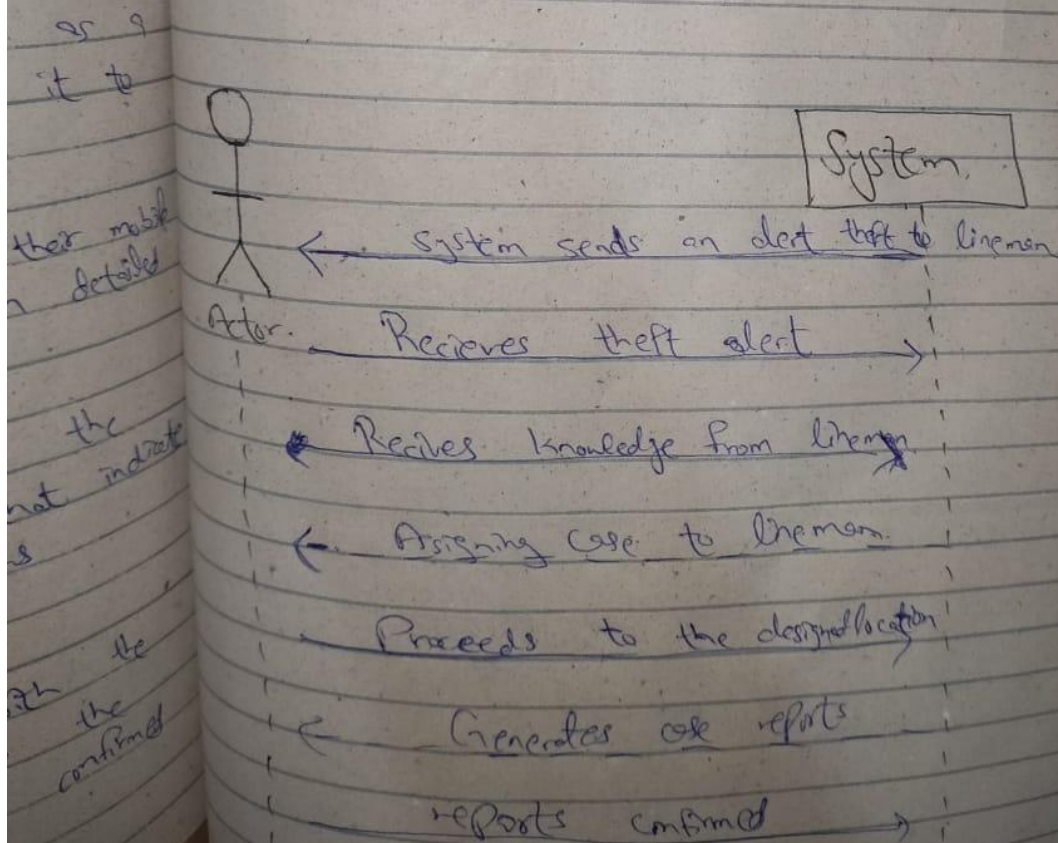 as a
it to
their mobile
detailed
the
not indicate
the
the
confirmed
System
System sends an alert theft to lineman
Actor.
Recieves theft alert
Recives knowledge from lineman
Assigning case to lineman.
Proceeds to the designed location
Generates case reports
reports confirmed